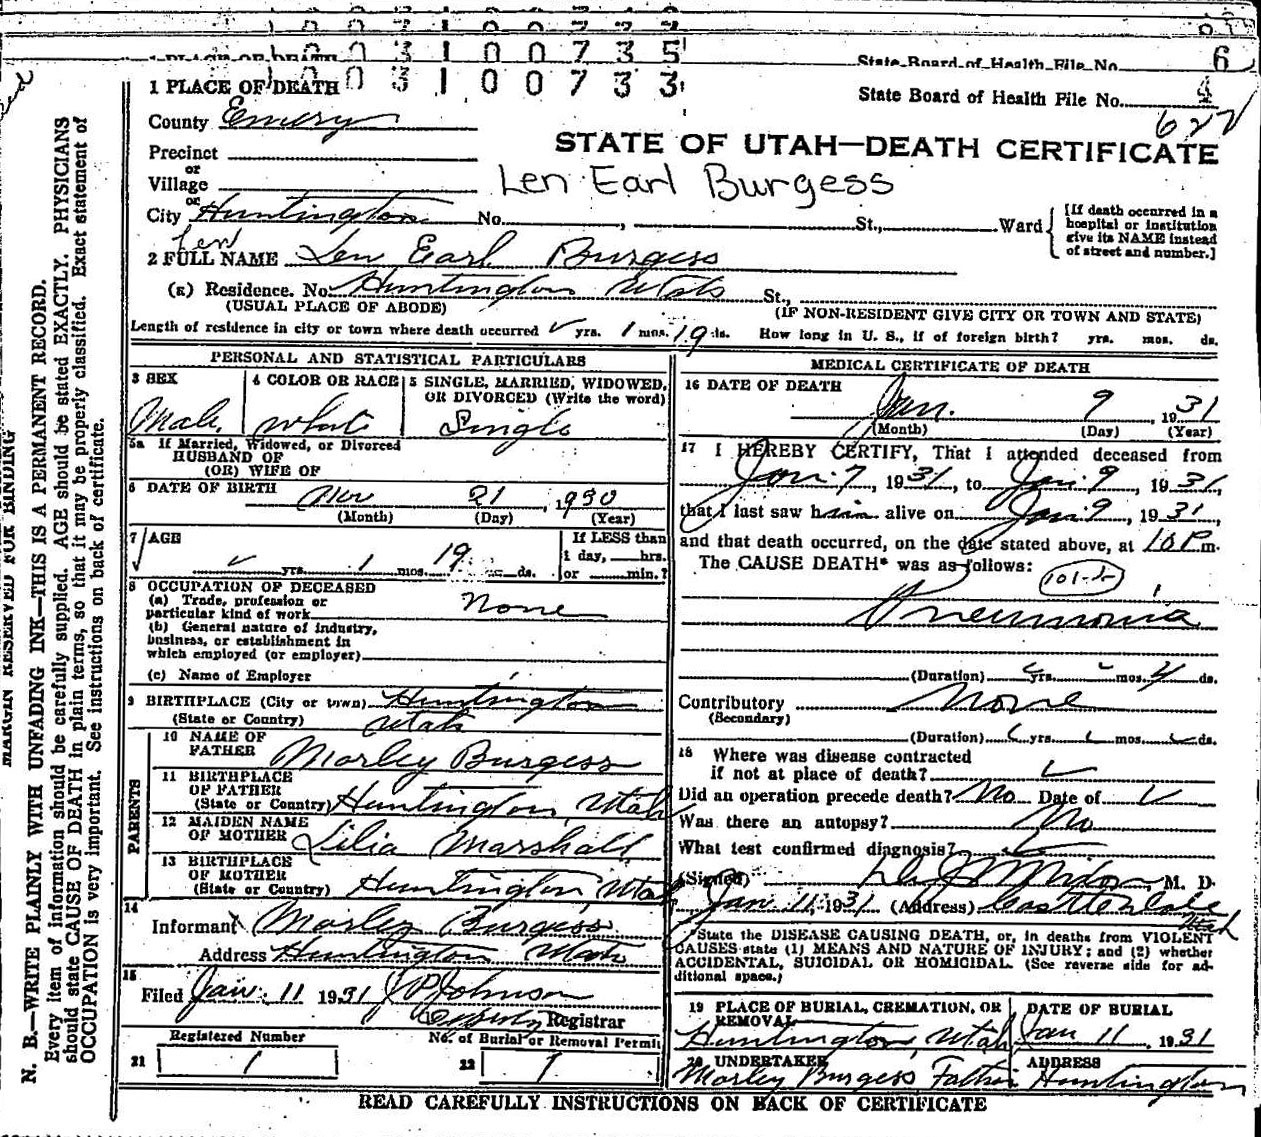 1 0 0 3 1 0 0 7 3 5
State Board of Health File No. 6
1 0 0 3 1 0 0 7 3 3
1 PLACE OF DEATH
State Board of Health File No. 4
627
County Emery
STATE OF UTAH—DEATH CERTIFICATE
Precinct
or
Village
Len Earl Burgess
or
City Huntington No. , St., Ward
[If death occurred in a hospital or institution give its NAME instead of street and number.]
Len
2 FULL NAME Len Earl Burgess
(R) Residence. No. Huntington Utah St.,
(USUAL PLACE OF ABODE) (IF NON-RESIDENT GIVE CITY OR TOWN AND STATE)
Length of residence in city or town where death occurred yrs. 1 mos. 19 ds. How long in U. S., if of foreign birth? yrs. mos. ds.
PERSONAL AND STATISTICAL PARTICULARS
3 SEX
Male
4 COLOR OR RACE
white
5 SINGLE, MARRIED, WIDOWED, OR DIVORCED (Write the word)
Single
5a If Married, Widowed, or Divorced
HUSBAND OF
(OR) WIFE OF
6 DATE OF BIRTH Nov 21, 1930
(Month) (Day) (Year)
7 AGE
yrs. 1 mos. 19 ds.
If LESS than
1 day, hrs.
or min.?
8 OCCUPATION OF DECEASED
(a) Trade, profession or
particular kind of work None
(b) General nature of industry,
business, or establishment in
which employed (or employer)
(c) Name of Employer
9 BIRTHPLACE (City or town) Huntington
(State or Country) Utah
PARENTS
10 NAME OF
FATHER Morley Burgess
11 BIRTHPLACE
OF FATHER
(State or Country) Huntington, Utah
12 MAIDEN NAME
OF MOTHER Lilia Marshall
13 BIRTHPLACE
OF MOTHER
(State or Country) Huntington, Utah
14
Informant Morley Burgess
Address Huntington Utah
15
Filed Jan. 11 1931 J P Johnson
Registrar
Registered Number
21 1
No. of Burial or Removal Permit
22 1
MEDICAL CERTIFICATE OF DEATH
16 DATE OF DEATH
Jan. 9 1931
(Month) (Day) (Year)
17 I HEREBY CERTIFY, That I attended deceased from
Jan. 7, 1931, to Jan. 9, 1931,
that I last saw him alive on Jan 9, 1931,
and that death occurred, on the date stated above, at 10 P m.
The CAUSE DEATH* was as follows:
Pneumonia
(Duration) yrs. mos. 4 ds.
Contributory None
(Secondary)
(Duration) yrs. mos. ds.
18 Where was disease contracted
if not at place of death?
Did an operation precede death? No Date of
Was there an autopsy? No
What test confirmed diagnosis?
(Signed) M. D.
Jan 11, 1931 (Address) Castle Dale
Utah
*State the DISEASE CAUSING DEATH, or, in deaths from VIOLENT
CAUSES state (1) MEANS AND NATURE OF INJURY; and (2) whether
ACCIDENTAL, SUICIDAL OR HOMICIDAL. (See reverse side for additional space.)
19 PLACE OF BURIAL, CREMATION, OR
REMOVAL
Huntington, Utah
DATE OF BURIAL
Jan 11, 1931
20 UNDERTAKER
Morley Burgess Father
ADDRESS
Huntington
READ CAREFULLY INSTRUCTIONS ON BACK OF CERTIFICATE
MARGIN RESERVED FOR BINDING
N. B.—WRITE PLAINLY WITH UNFADING INK—THIS IS A PERMANENT RECORD.
Every item of information should be carefully supplied. AGE should be stated EXACTLY. PHYSICIANS
should state CAUSE OF DEATH in plain terms, so that it may be properly classified. Exact statement of
OCCUPATION is very important. See instructions on back of certificate.